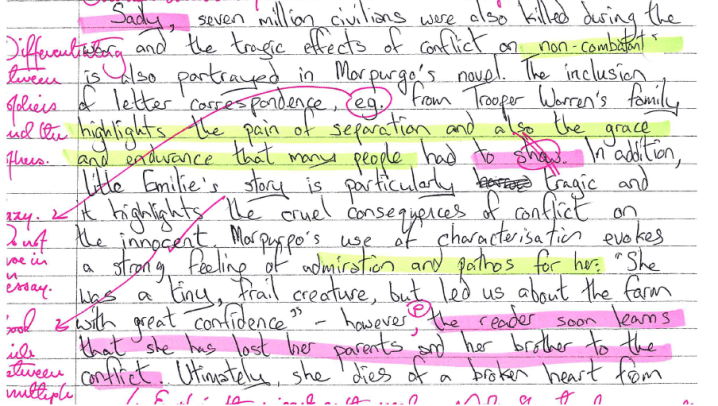 Sadly, seven million civilians were also killed during the
war and the tragic effects of conflict on non-combatants
Differentiating
is also portrayed in Morpurgo's novel. The inclusion
of letter correspondence, e.g. from Trooper Warren's family
highlights the pain of separation and also the grace
and endurance that many people had to show. In addition,
little Emilie's story is particularly tragic and
it highlights the cruel consequences of conflict on
the innocent. Morpurgo's use of characterisation evokes
a strong feeling of admiration and pathos for her: "She
was a tiny, frail creature, but led us about the farm
essay.
with great confidence" - however, the reader soon learns
that she has lost her parents and her brother to the
conflict. Utimately, she dies of a broken heart from
multiple